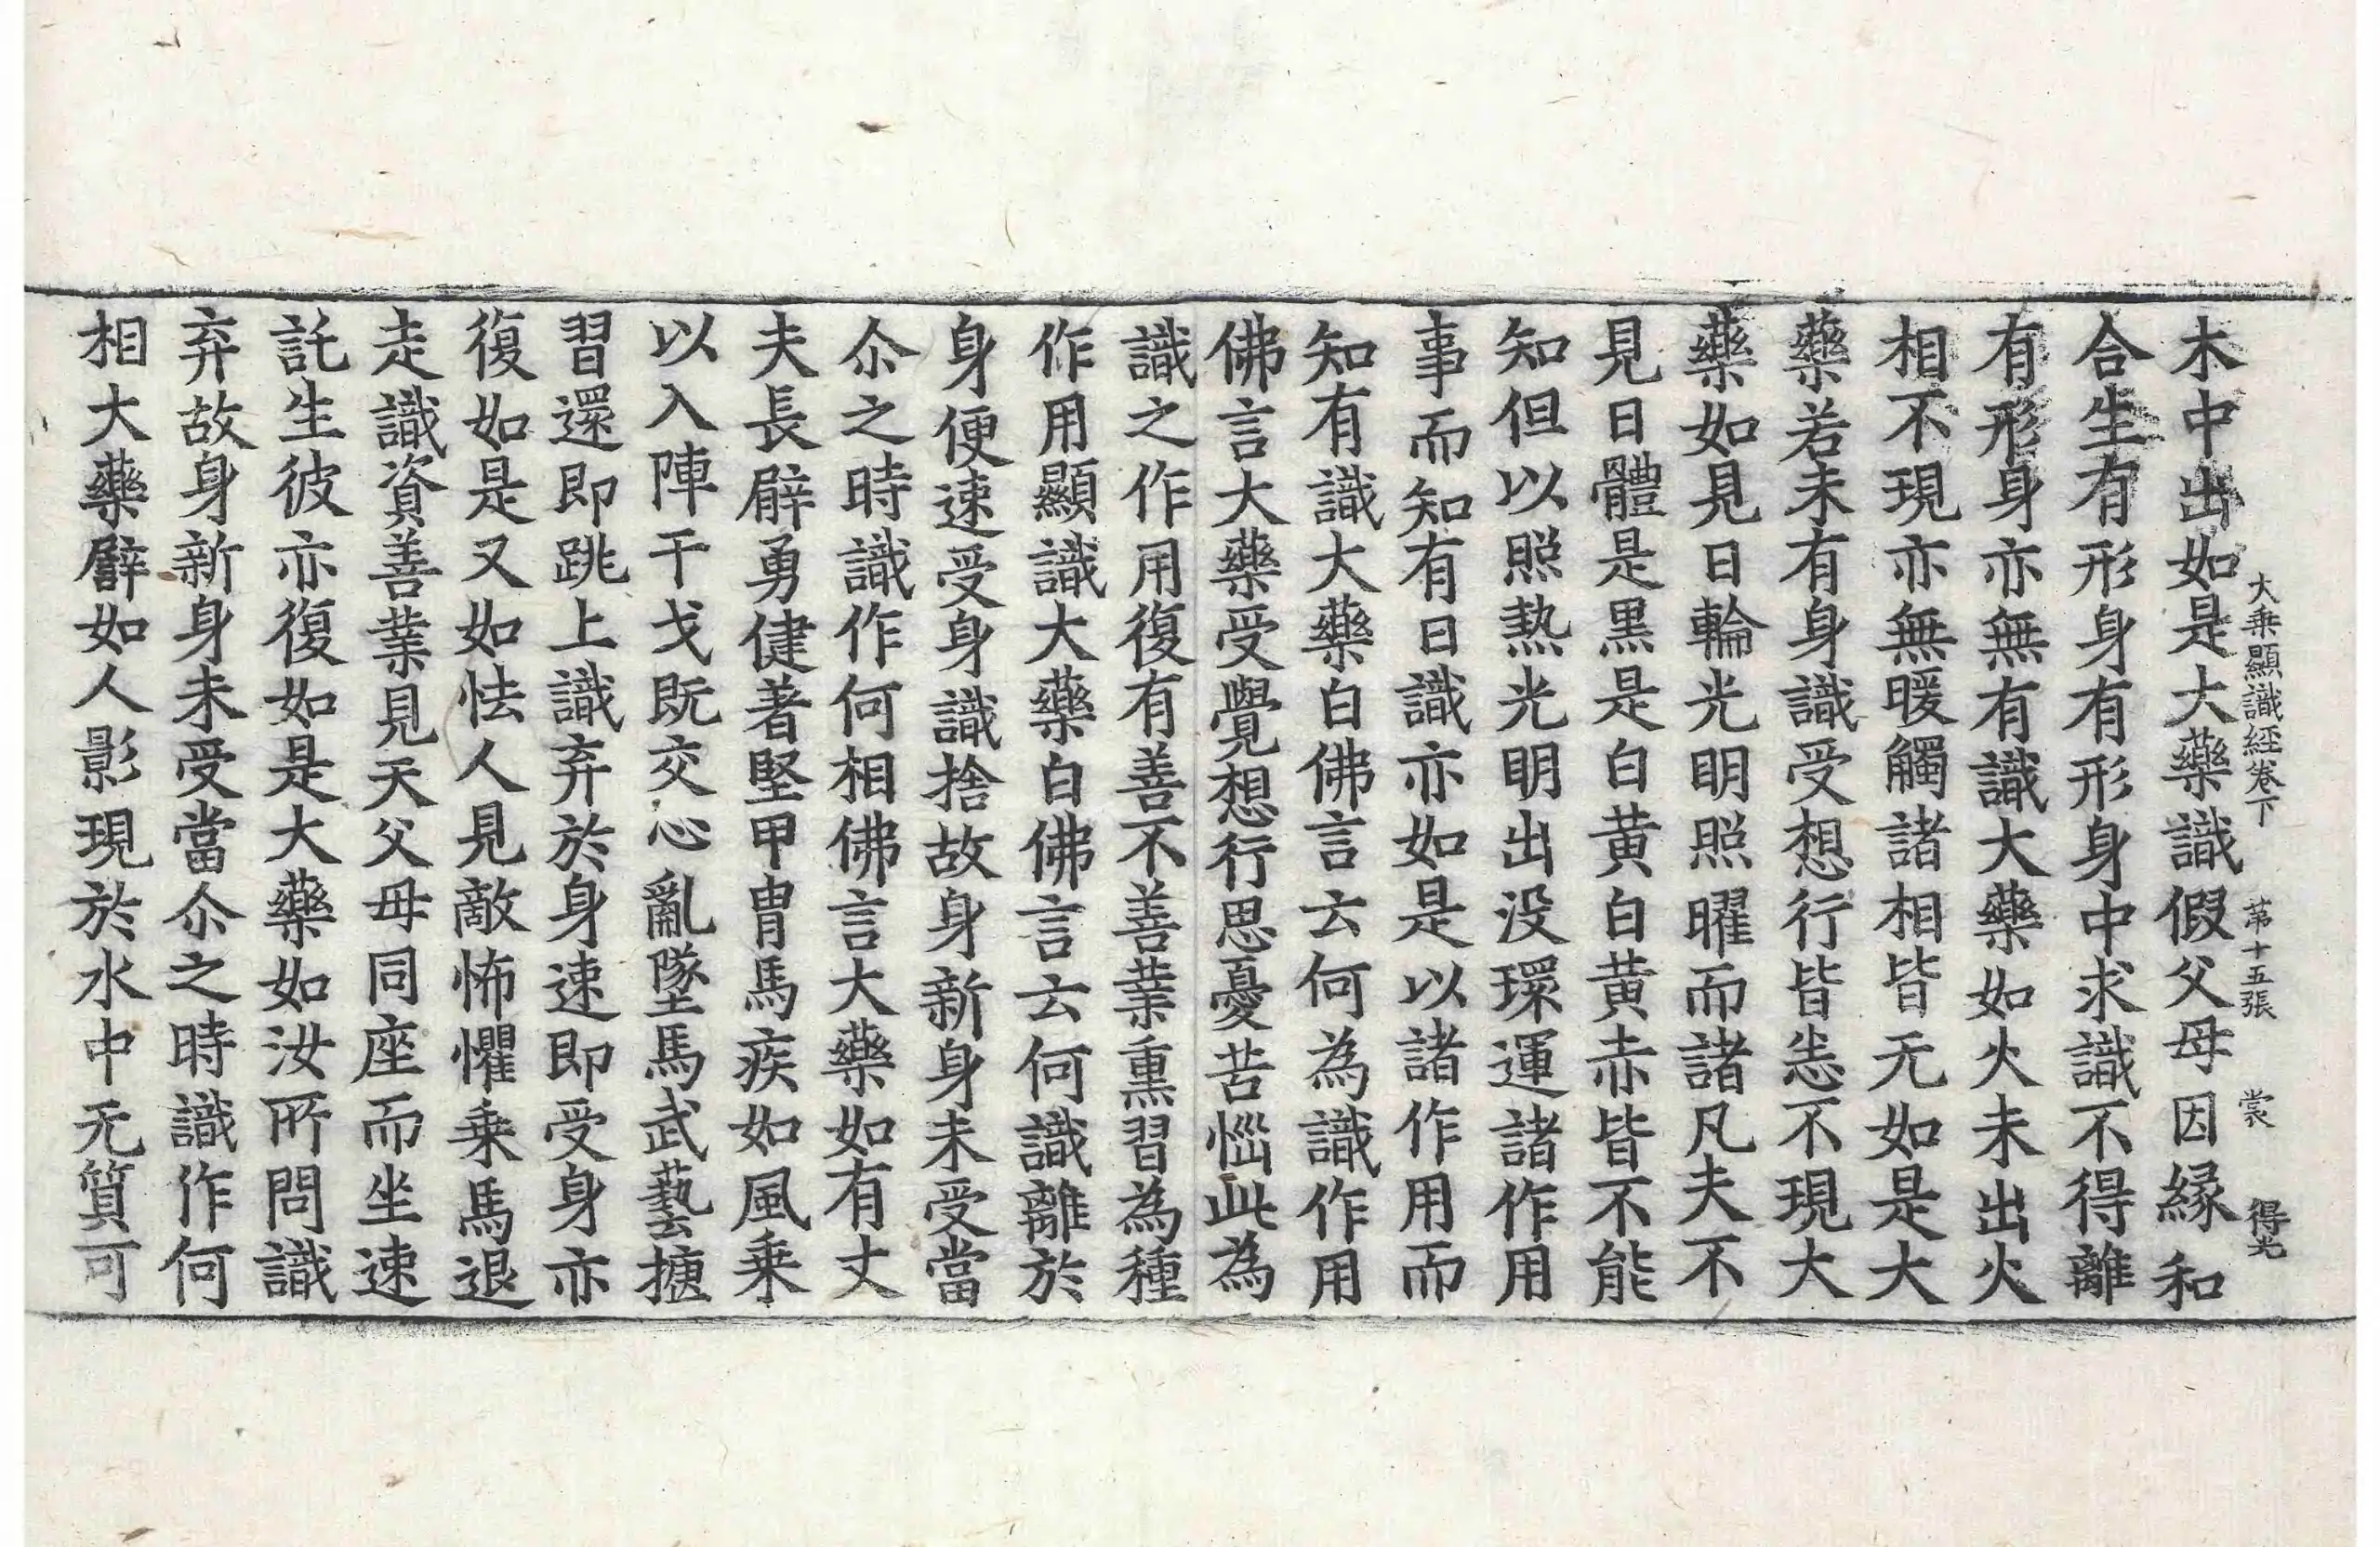 大乗顯識經卷下 苐十五張 裳 得光
木中出如是大藥識假父母因緣和
合生有形身有形身中求識不得離
有形身亦無有識大藥如火未出火
相不現亦無暖觸諸相皆无如是大
藥若未有身識受想行皆悉不現大
藥如見日輪光明照曜而諸凡夫不
見日體是黒是白黄白黄赤皆不能
知但以照熱光明出没環運諸作用
事而知有日識亦如是以諸作用而
知有識大藥白佛言云何為識作用
佛言大藥受覺想行思憂苦惱此為
識之作用復有善不善業熏習為種
作用顯識大藥白佛言云何識離於
身便速受身識捨故身新身未受當
尒之時識作何相佛言大藥如有丈
夫長臂勇健著堅甲胄馬疾如風乗
以入陣干戈既交心亂墜馬武藝㨿
習還即跳上識弃於身速即受身亦
復如是又如怯人見敵怖懼乗馬退
走識資善業見天父母同座而坐速
託生彼亦復如是大藥如汝所問識
弃故身新身未受當尒之時識作何
相大藥譬如人影現於水中无質可